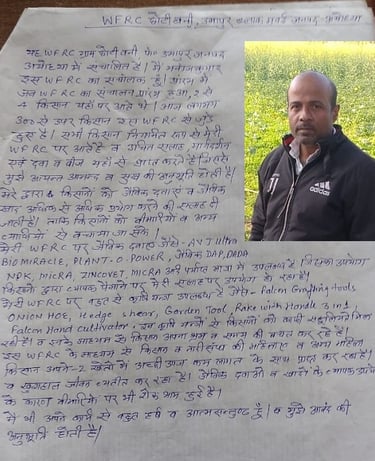 WFRC छोटीबनी, उमापुर ब्लाक मवई जनपद अयोध्या
यह WFRC ग्राम छोटी बनी पो० उमापुर जनपद
अयोध्या में संचालित है। मैं मनोजकुमार
इस WFRC का संचालक हूँ। प्रारंभ में
जब WFRC का संचालन प्रारंभ हुआ, 2 से
4 किसान यहाँ पर आते थे। आज लगभग
300 से ऊपर किसान इस WFRC से जुड़
चुका है। सभी किसान नियमित रूप से मेरी
WFRC पर आते हैं व उचित सलाह, मार्गदर्शन
एवं दवा व बीज यहाँ से प्राप्त करते हैं जिससे
मुझे अत्यन्त आनन्द व सुख की अनुभूति होती है।
मेरे द्वारा किसानों को जैविक दवाएं व जैविक
खाद अधिक से अधिक प्रयोग करने की सलाह दी
जाती है। ताकि किसानों को बीमारियों व अन्य
से बचाया जा सके।
मेरी WFRC पर जैविक दवाएं जैसे- AVJ Ultra
BIO MIRACLE, PLANT-O-POWER, जैविक DAP, DADA
NPK, MICRA, ZINCOVET, MICRA आदि पर्याप्त मात्रा में उपलब्ध है जिसका उपयोग
किसानों द्वारा व्यापक पैमाने पर मेरी सलाह पर उपयोग के रहा है।
मेरी WFRC पर बहुत से कृषि यन्त्र उपलब्ध हैं जैसे- Falcon Grafting tools
ONION HOE, Hedge shear, Gorden Tool, Rake with Handle 3 in 1,
Falcon Hand cultivator, इन कृषि यन्त्रों से किसानों को काफी सहूलियत मिल
रही है। व इनके माध्यम से किसान अपना श्रम व समय की बचत कर रहे हैं।
इस WFRC के माध्यम से किसान व गरीब की महिलाएं व अन्य महिला
किसान अपने-2 खेतों में अच्छी उपज कम लागत के साथ प्राप्त कर रहा है।
व खुशहाल जीवन व्यतीत कर रहा है। जैविक दवाओं व खादों के व्यापक प्रयोग
के कारण बीमारियों पर भी रोक थाम हुई है।
मैं भी अपने कार्य से बहुत हर्ष व आत्मसन्तुष्ट हूँ। व मुझे आनंद की
अनुभूति होती है।
adidas